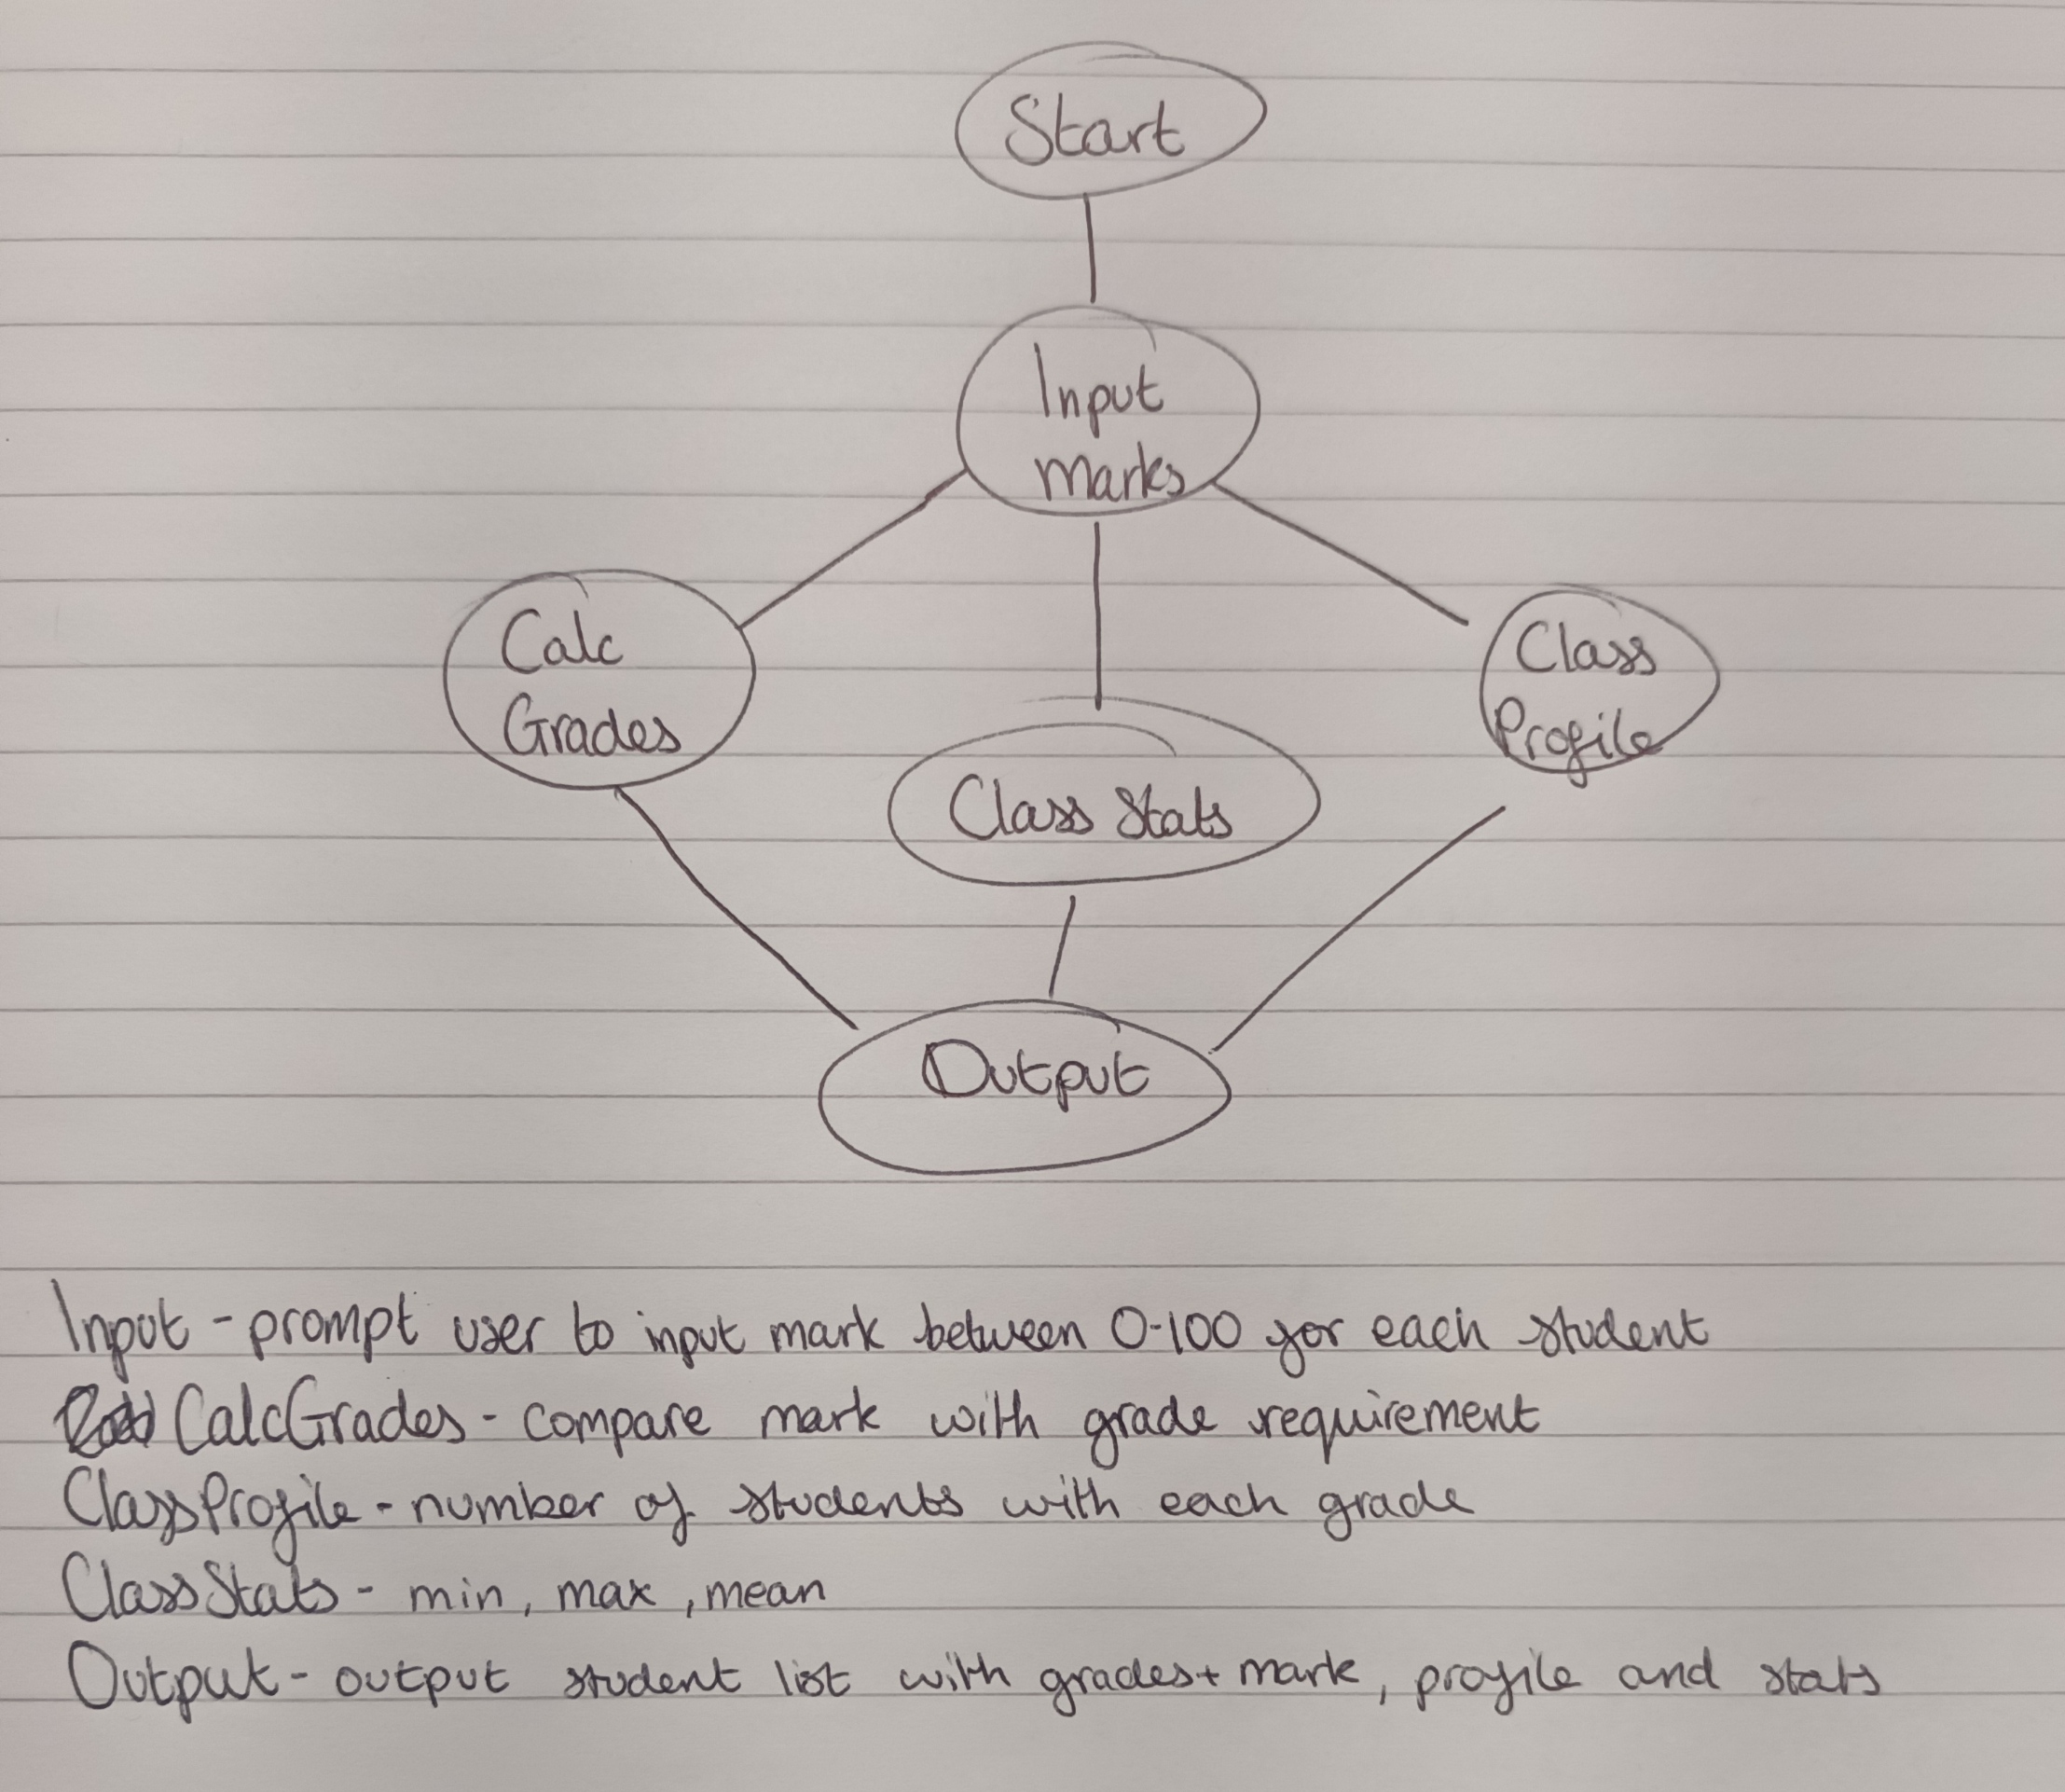 Start
Input
Marks
Calc
Grades
Class Stats
Class
Profile
Output
Input - prompt user to input mark between 0-100 for each student
CalcGrades - compare mark with grade requirement
ClassProfile - number of students with each grade
ClassStats - min, max, mean
Output - output student list with grades + mark, profile and stats